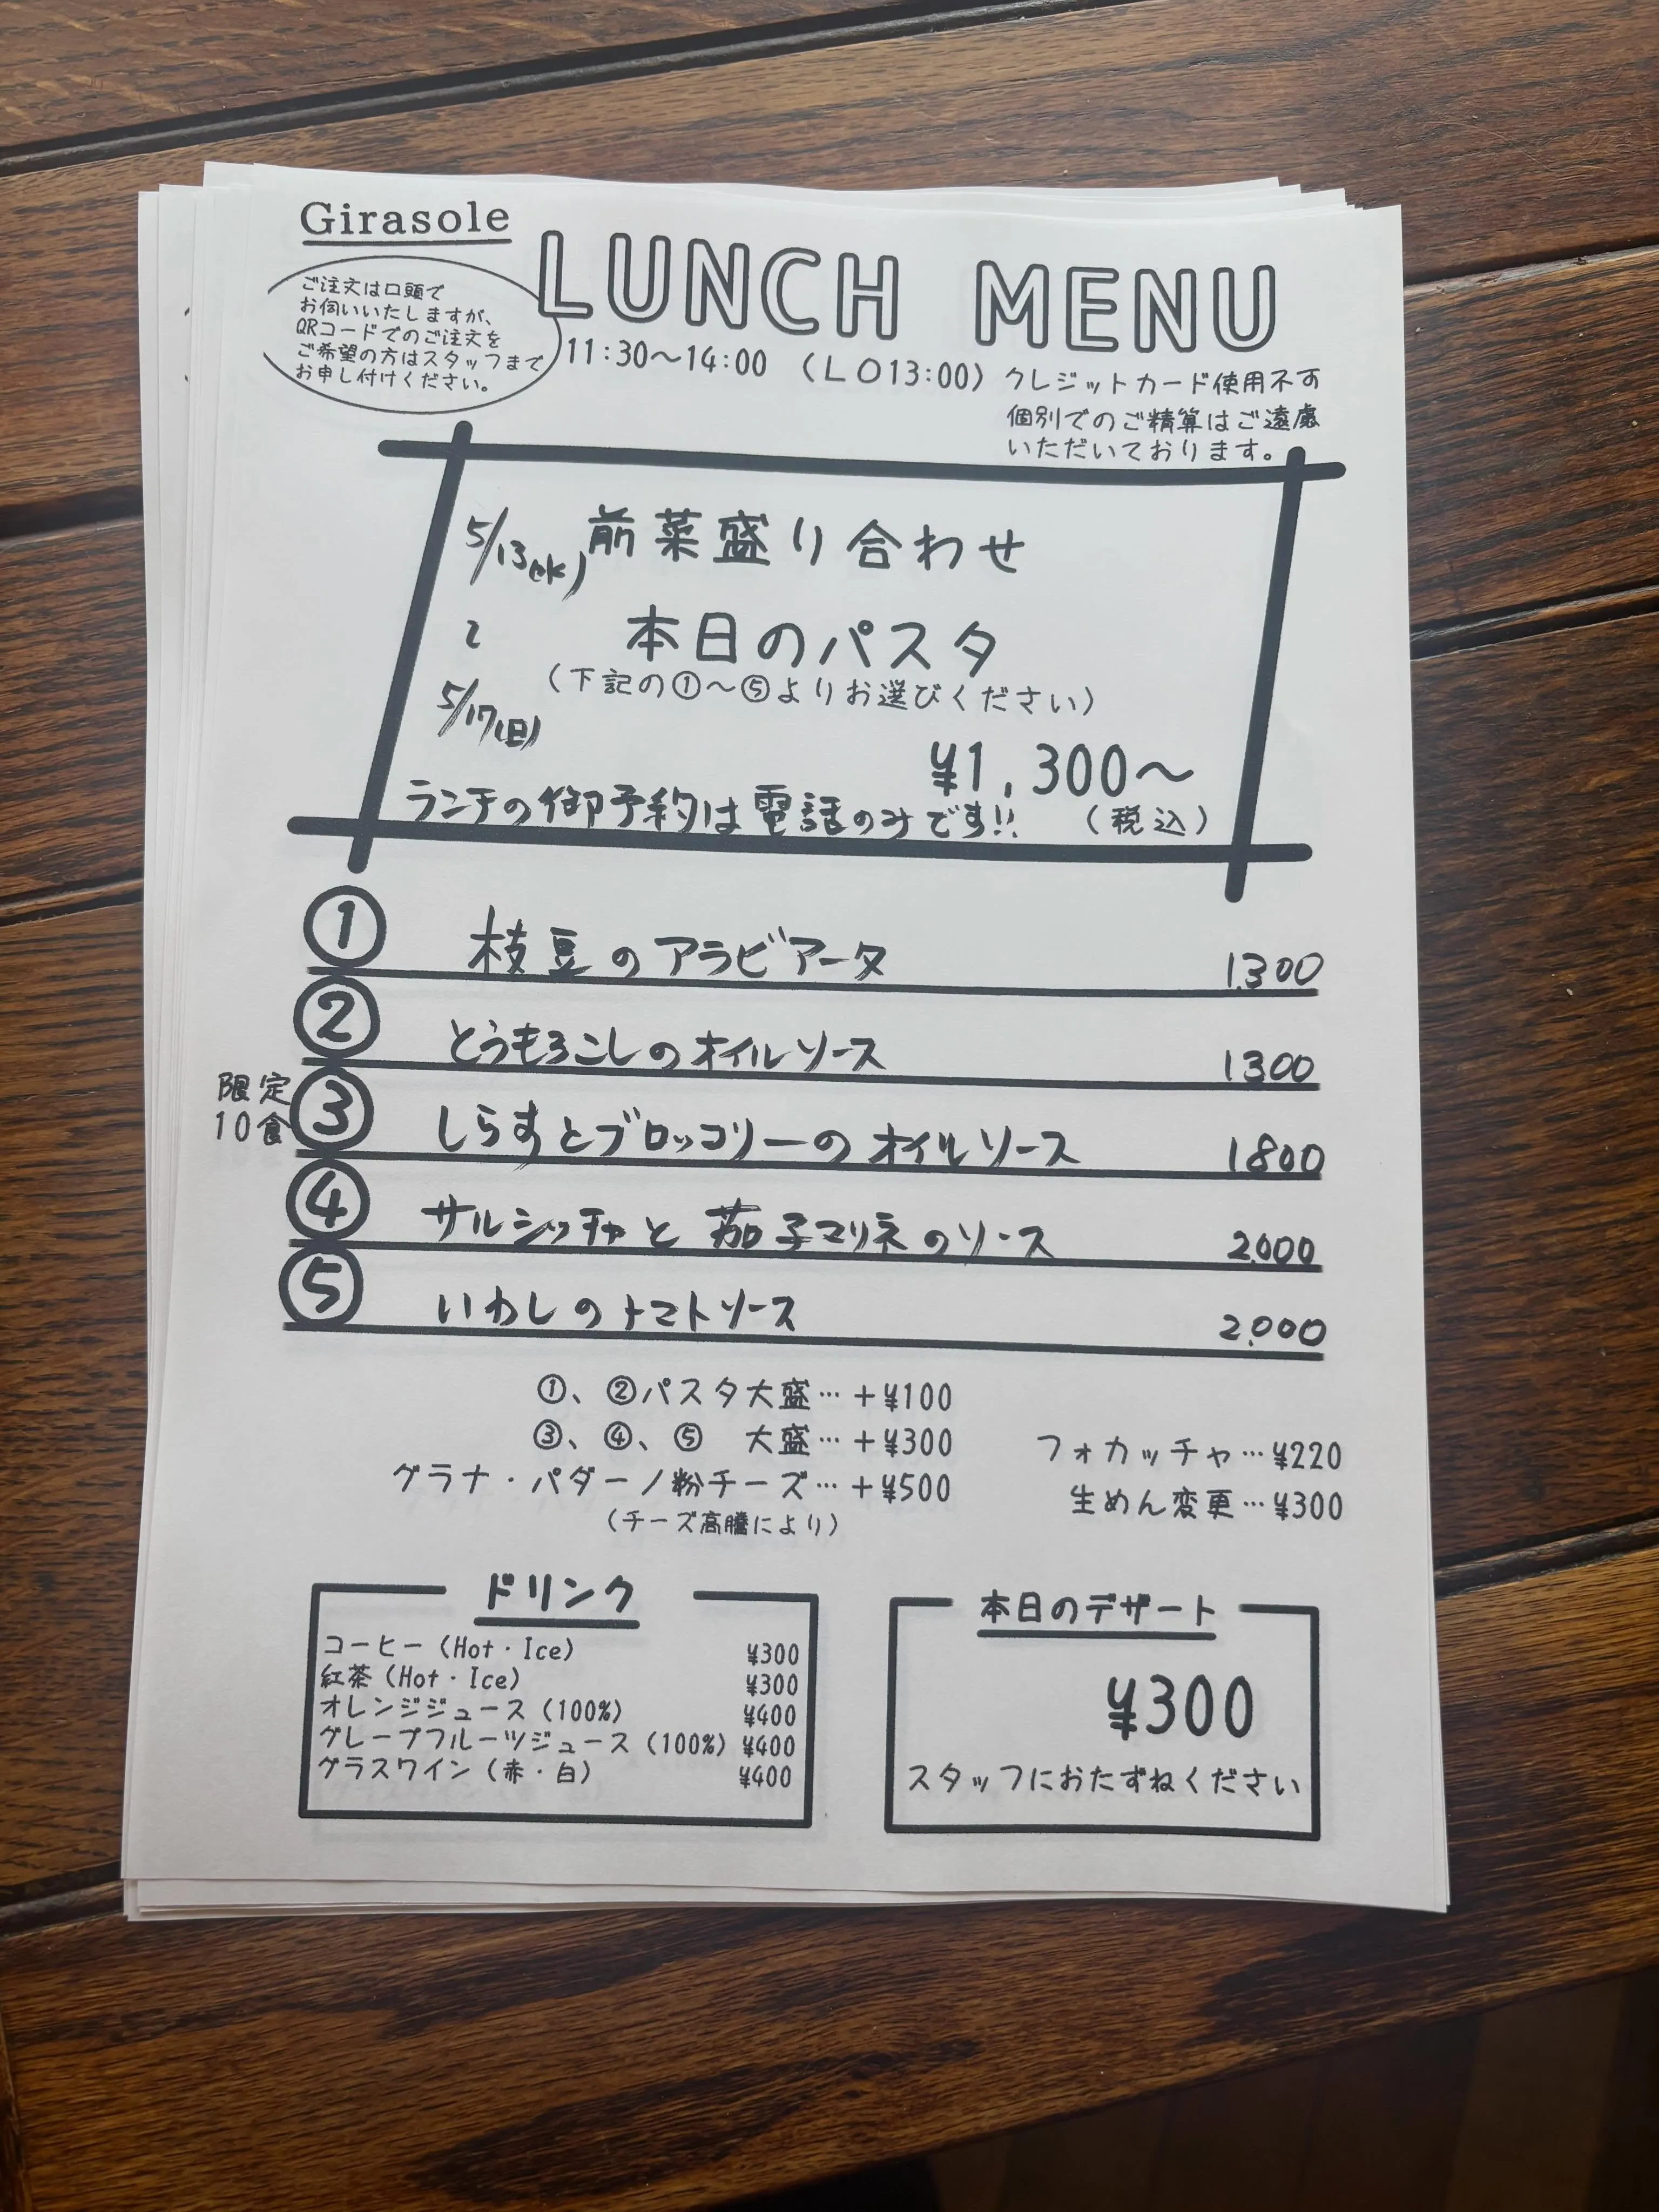 Girasole
LUNCH MENU
ご注文は口頭で
お伺いいたしますが、
QRコードでのご注文を
ご希望の方はスタッフまで
お申し付けください。
11:30～14:00 （LO13:00）クレジットカード使用不可
個別でのご精算はご遠慮
いただいております。
5/13(水)
前菜盛り合わせ
～
本日のパスタ
（下記の①～⑤よりお選びください）
5/17(日)
¥1,300～
ランチの御予約は電話のみです!!
（税込）
① 枝豆のアラビアータ 1.300
② とうもろこしのオイルソース 1300
限定
10食
③ しらすとブロッコリーのオイルソース 1800
④ サルシッチャと茄子マリネのソース 2.000
⑤ いわしのトマトソース 2.000
①、②パスタ大盛…＋¥100
③、④、⑤ 大盛…＋¥300
グラナ・パダーノ粉チーズ…＋¥500
（チーズ高騰により）
フォカッチャ…¥220
生めん変更…¥300
ドリンク
コーヒー（Hot・Ice） ¥300
紅茶（Hot・Ice） ¥300
オレンジジュース（100%） ¥400
グレープフルーツジュース（100%） ¥400
グラスワイン（赤・白） ¥400
本日のデザート
¥300
スタッフにおたずねください